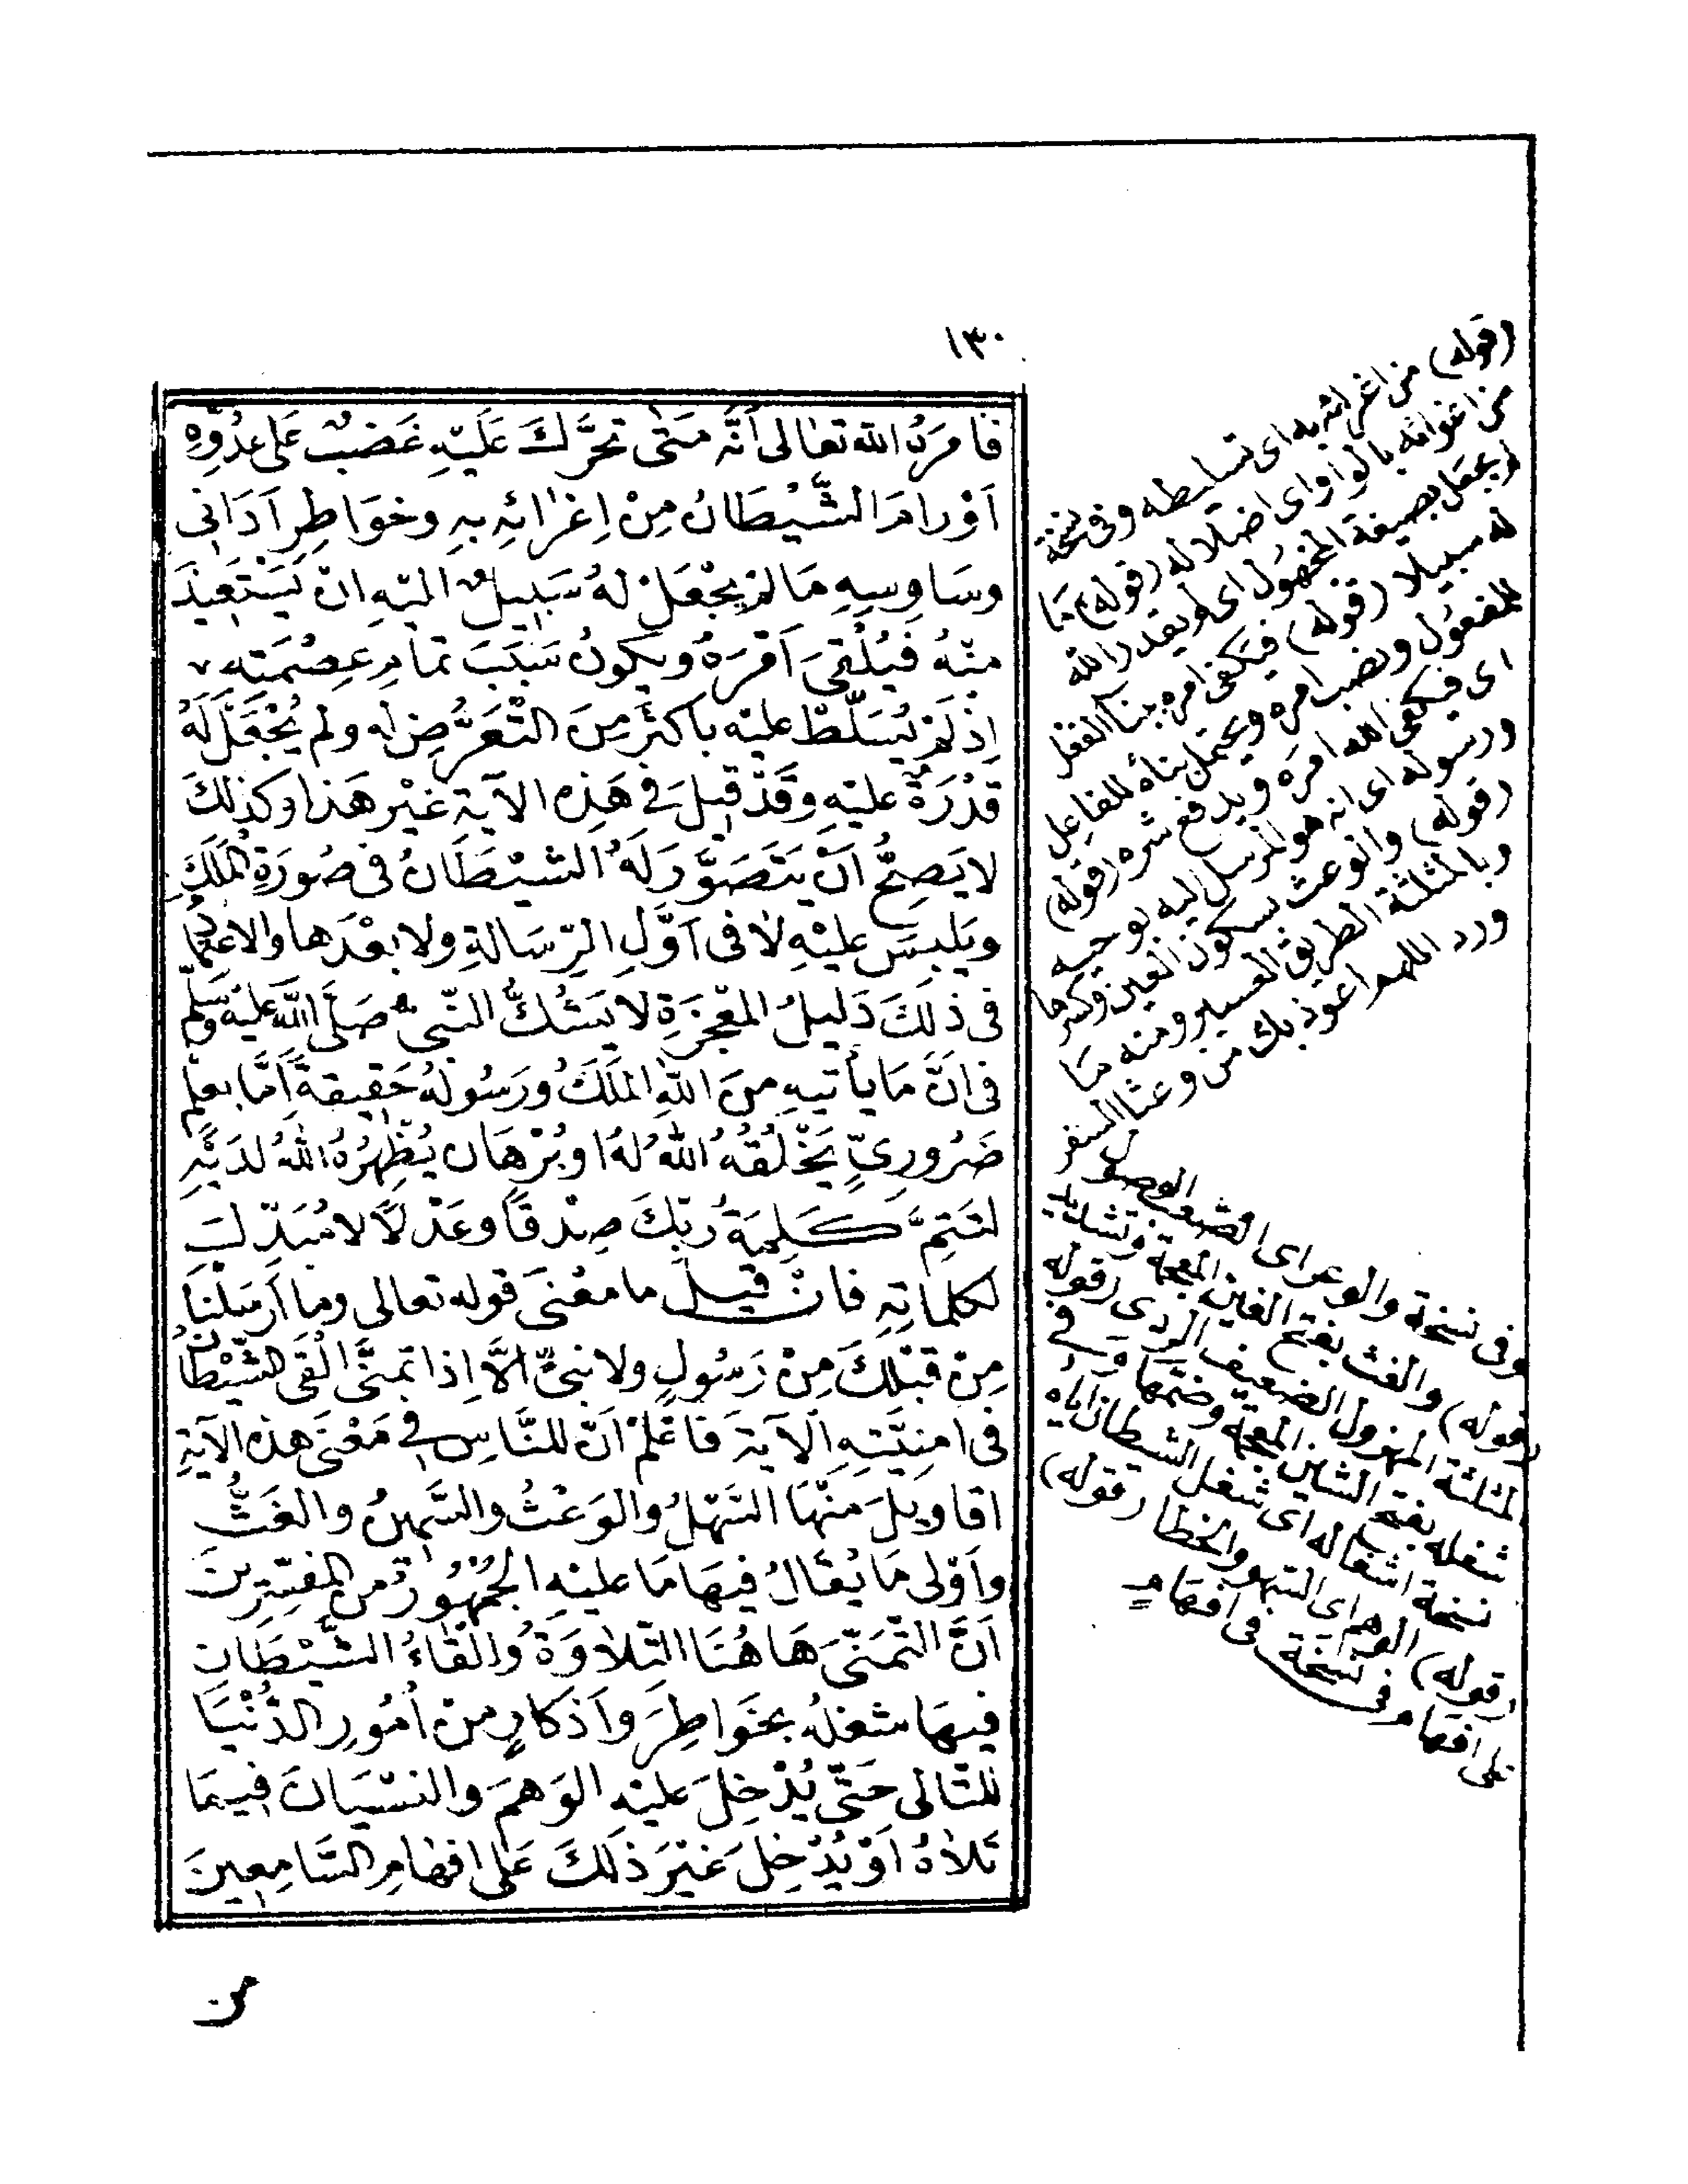 ١٣٠
فَامَرَهُ الله تعالى أنَّه مَتٰى تَحَرَّكَ عَلَيْهِ غَضَبٌ عَلٰى عَدُوِّهِ
اَوْ رَامَ الشَّيْطَانُ مِنْ اِغْرَائِهِ بِهِ وخَوَاطِرِ اَدَانٰى
وسَاوِسِهِ مَا لم يُجْعَلْ لهُ سَبِيلٌ اليْهِ انْ يَسْتَعِيذَ
منْهُ فَيُكْفٰى اَمْرَهُ ويكونُ سَبَبَ تمامِ عِصْمَتِه
اِذْ لَمْ يُسَلَّطْ عليْه باكثَرَ مِنَ التَّعَرُّضِ له ولم يُجْعَلْ لَهُ
قدْرَةٌ عليْهِ وقَدْ قيلَ فى هَذِه الآية غيْر هَذا وكذلِكَ
لا يَصِحُّ اَنْ يَتَصَوَّرَ لَهُ الشَّيْطَانُ فى صُورَةِ المَلَكِ
ويَلبِسَ عليْهِ لا فى اَوَّلِ الرِّسَالةِ ولا بعْدَها والاعتمادُ
فى ذلِكَ دَليلُ المُعْجِزَةِ لا يَشُكُّ النّبىُّ صَلَّى اللّٰه عَليْه وسَلّم
فى اَنَّ مَا يأتيهِ مِنَ اللّٰهِ المَلَكُ ورَسُولهُ حَقِيقةً اِمَّا بعِلْمٍ
ضَرُورىٍّ يَخْلُقُهُ اللهُ لهُ اوْ بُرْهَانٍ يُظْهِرُهُ اللهُ لدَيْهِ
لتَتِمَّ كَلِمَةُ رَبِّكَ صِدْقًا وعَدْلًا لا مُبَدِّلَ
لكلماتِهِ فانْ قيلَ ما معْنَى قوله تعالى وما اَرْسَلْنَا
مِنْ قبْلِكَ مِنْ رَسُولٍ ولا نبىٍّ الَّا اِذا تمنَّى اَلْقَى الشَّيْطَانُ
فى امنِيَّتِهِ الآيةَ فَاعْلَمْ اَنّ للنَّاسِ فى مَعْنَى هَذه الآيَةِ
اقاويلَ منْهَا السَّهْلُ والوَعْثُ والسَّمِينُ والغَثُّ
واَوْلى مَا يُقَالُ فيهَا مَا عليْهِ الجُمْهُورُ من المفسّرِينَ
اَنَّ التَّمَنِّىَ هَا هُنَا التِّلاوَةُ واِلْقَاءُ الشَّيْطَانِ
فيهَا شغلُهُ بخَوَاطِرَ واَذكارٍ مِنْ اُمُورِ الدُّنْيَا
للتّالى حَتّى يُدْخِلَ عليْهِ الوَهمَ والنسْيَانَ فيمَا
تَلاهُ اَوْ يُدْخِلَ غيْرَ ذلكَ عَلى افهَامِ السَّامِعينَ
من
(قوله) من اغرائه به اى تسليطه وفى نسخة
من اغوائه بالواو اى اضلاله (قوله) ما
لم يجعل بصيغة المجهول اى لم يقدر الله
له سبيلا (قوله) فيكفى امره ببناء الفعل
للمفعول ونصب امره ويحتمل بناؤه للفاعل
اى فيكفى الله امره ويدفع شره (قوله)
ورسوله اى انه هو المرسل اليه بوحيه
(قوله) والوعث بسكون العين وكسرها
وبالمثلثة الطريق العسير ومنه ما
ورد اللهم اعوذ بك من وعثاء السفر
وفى نسخة والوعر اى الصعب الوصول
(قوله) والغث بفتح الغين المعجمة وتشديد
المثلثة المهزول الضعيف الردى (قوله)
شغله بفتح الشين المعجمة وضمها وفى
نسخة اشغاله اى شغل الشيطان اياه
(قوله) الوهم اى السهو والخطا (قوله)
على افهام وفى نسخة فى افهام